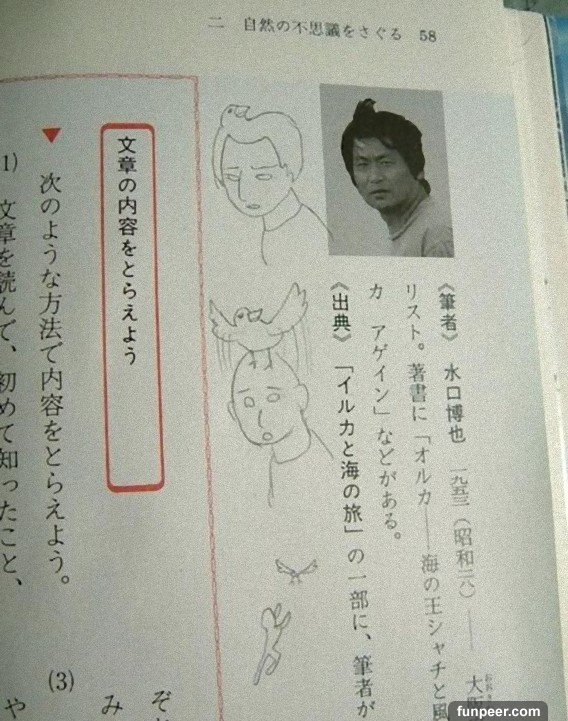 二 自然の不思議をさぐる 58
《筆者》 水口博也 一九五三(昭和二八)―― 大阪
リスト。著書に「オルカ――海の王シャチと風
カ アゲイン」などがある。
《出典》 「イルカと海の旅」の一部に、筆者が
文章の内容をとらえよう
▼ 次のような方法で内容をとらえよう。
1) 文章を読んで、初めて知ったこと、
(3)
ぞ
み
や
funpeer.com